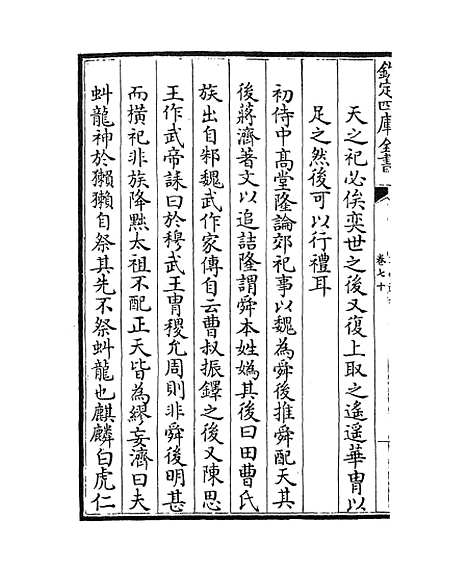 欽定四庫全書
卷七十
天之祀必俟奕世之後又復上取之遙遙華胄以
足之然後可以行禮耳
初侍中高堂隆論郊祀事以魏為舜後推舜配天其
後蔣濟著文以追詰隆謂舜本姓媯其後曰田曹氏
族出自邾魏武作家傳自云曹叔振鐸之後又陳思
王作武帝誄曰於穆武王胄稷允周則非舜後明甚
而橫祀非族降黜太祖不配正天皆為繆妄濟曰夫
虯龍神於獺獺自祭其先不祭虯龍也麒麟白虎仁